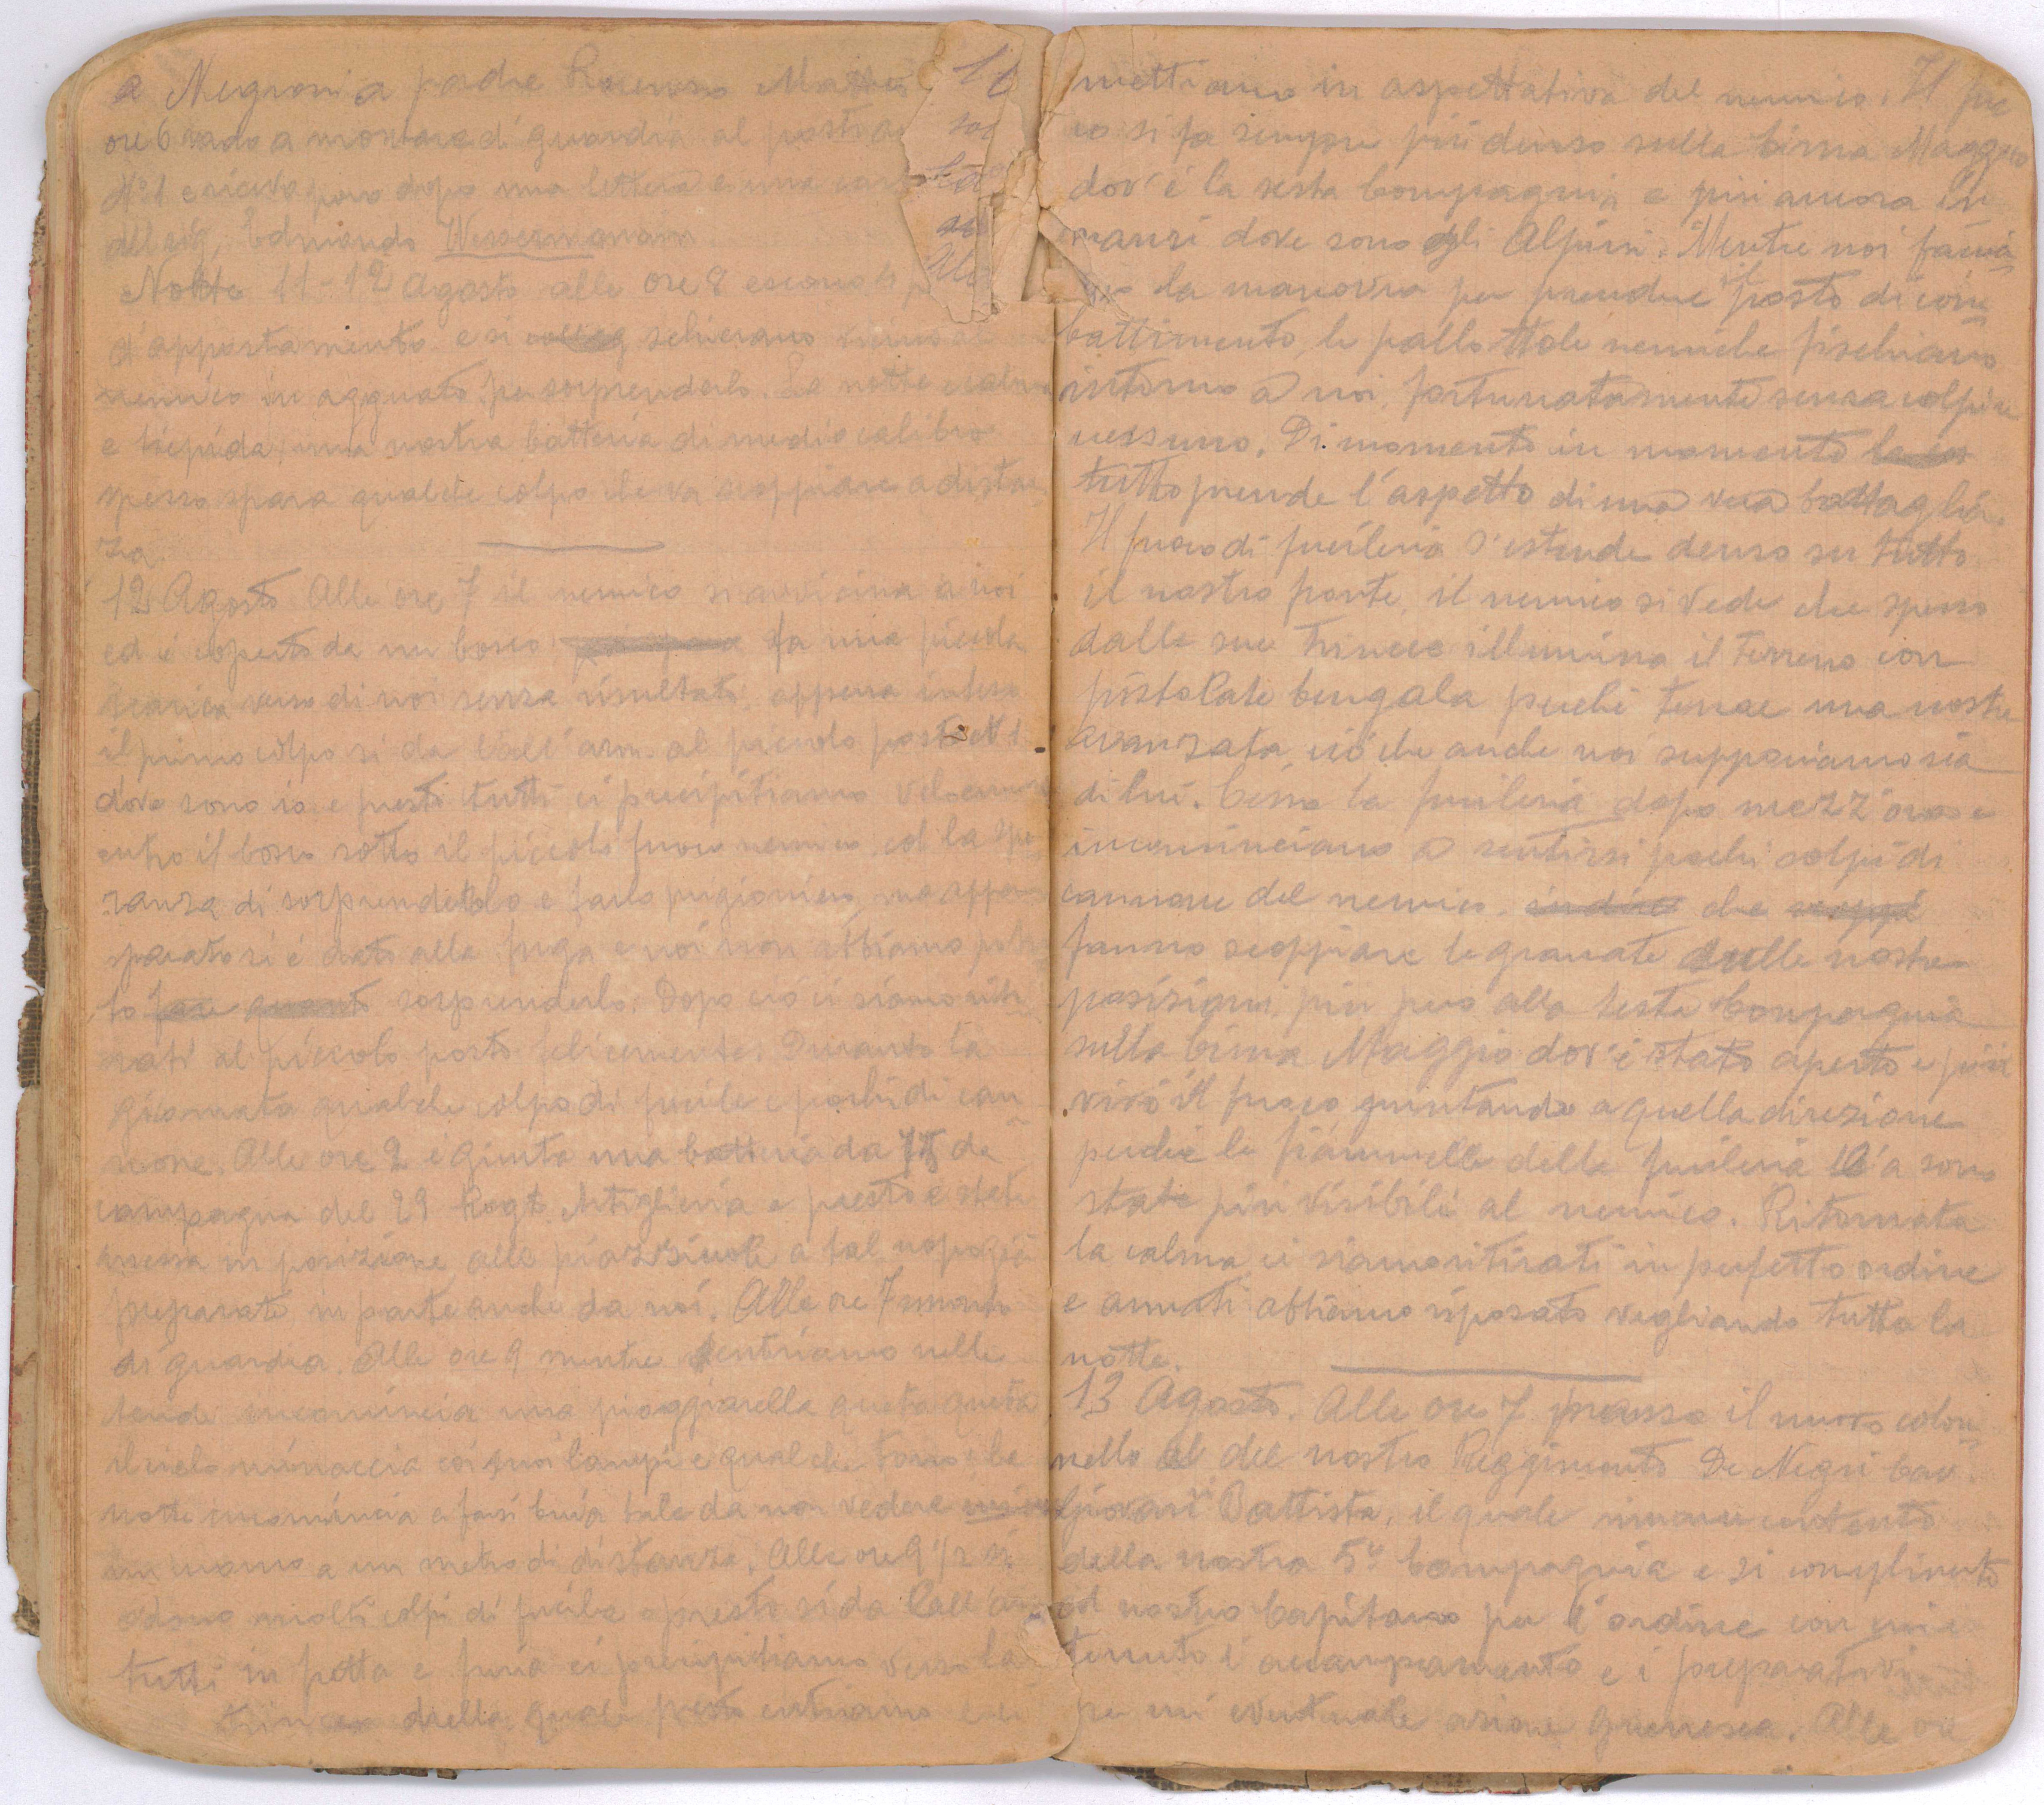 a Negroni a padre Lorenzo Mattei
ore 6 vado a montare di guardia al posto
N° 1 e ricevo poco dopo una lettera e una
del sig. Edmondo
Notte 11-12 Agosto alle ore 8 escono
d'appostamento e si schierano vicino al
nemico in agguato per sorprenderlo. La notte e calma
e tiepida, una nostra batteria di medio calibro
spesso spara qualche colpo che va scoppiare a distan
za.
12 Agosto Alle ore 7 il nemico si avvicina a noi
ed è coperto da un bosco fa una piccola
scarica verso di noi senza risultato, appena inteso
il primo colpo si da l'all'arm. al piccolo posto N 1
dove sono io e presti tutti ci precipitiamo velocemente
entro il bosco sotto il piccolo fuoco nemico, col la spe
ranza di sorprendetolo e farlo prigioniero, ma appena
sparato si è dato alla fuga e noi non abbiamo potu
to fare quanto sorprenderlo. Dopo ciò ci siamo riti
rati al piccolo posto felicemente. Durante la
giornata qualche colpo di fucile e pochi di can
none. Alle ore 2 è giunta una batteria da 75 da
campagna del 29 Regt. Artiglieria e presto è stata
messa in posizione alle piazzuole a tal uopo già
preparate in parte anche da noi. Alle ore 7 smonto
di guardia. Alle ore 9 mentre entriamo nelle
tende incomincia una pioggiarella queta queta
il cielo minaccia coi suoi lampi e qualche tuono, la
notte incomincia a farsi buia tale da non vedere
un uomo a un metro di distanza. Alle ore 9 1/2 si
odono molti colpi di fucile e presto si da l'all'arm
tutti in fretta e furia ci precipitiamo verso la
trincea della quale presto entriamo e ci
mettiamo in aspettativa del nemico. Il fuo
co si fa sempre più denso sulla Cima Maggio
dov'è la sesta Compagnia e più ancora in
nanzi dove sono gli Alpini. Mentre noi faccia
mo la manovra per prendere il posto di com
battimento, le pallottole nemiche fischiano
intorno a noi, fortunatamente senza colpire
nessuno. Di momento in momento
tutto prende l'aspetto di una vera battaglia.
Il fuoco di fucileria s'estende denso su tutto
il nostro fronte, il nemico si vede che spesso
dalle sue trincee illumina il terreno con
pistolate bengala perchè teme una nostra
avanzata, ciò che anche noi supponiamo sia
di lui. Cessa la fucileria dopo mezz'ora e
incominciano a sentirsi pochi colpi di
cannone del nemico indire che scoppi
fanno scoppiare le granate sulle nostre
posizioni, più però alla sesta Compagnia
sulla Cima Maggio dov'è stato aperto e più
vivo il fuoco puntando a quella direzione
perchè le fiammelle della fucileria là sono
state più visibili al nemico. Ritornata
la calma ci siamo ritirati in perfetto ordine
e armati abbiamo riposato vegliando tutta la
notte.
13 Agosto. Alle ore 7 passa il nuovo colon
nello del nostro Reggimento De Negri Cav.
Giovan Battista, il quale rimane contento
della nostra 5ª Compagnia e si complimenta
col nostro Capitano per l'ordine con cui è
tenuto l'accampamento e i preparativi
per un'eventuale azione guerresca. Alle ore